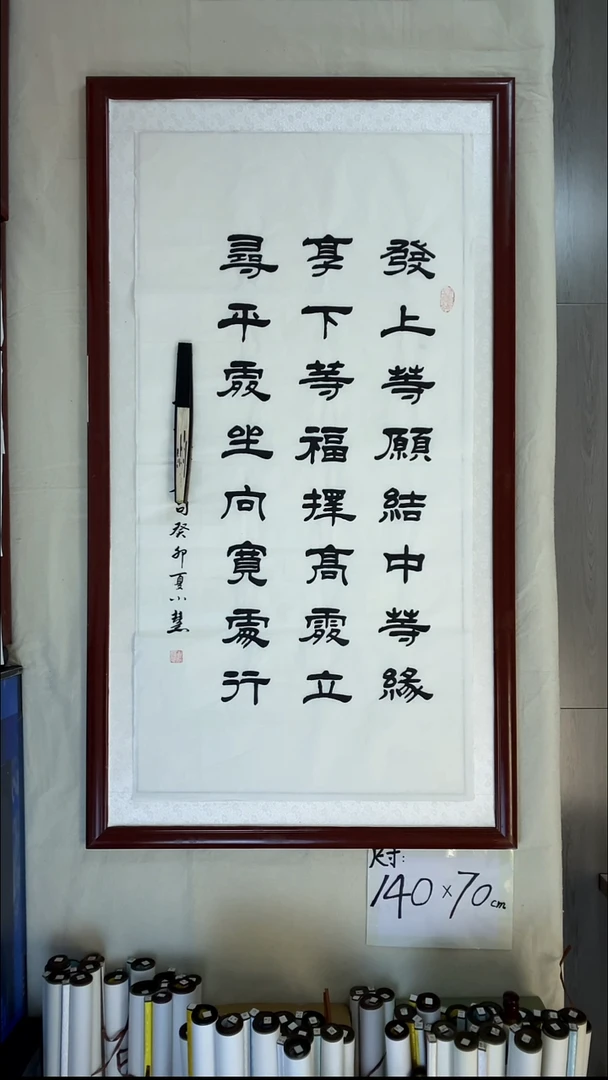 發上等願結中等緣
享下等福擇高處立
尋平處坐向寬處行
句癸卯夏小慧
尺寸:
140×70cm